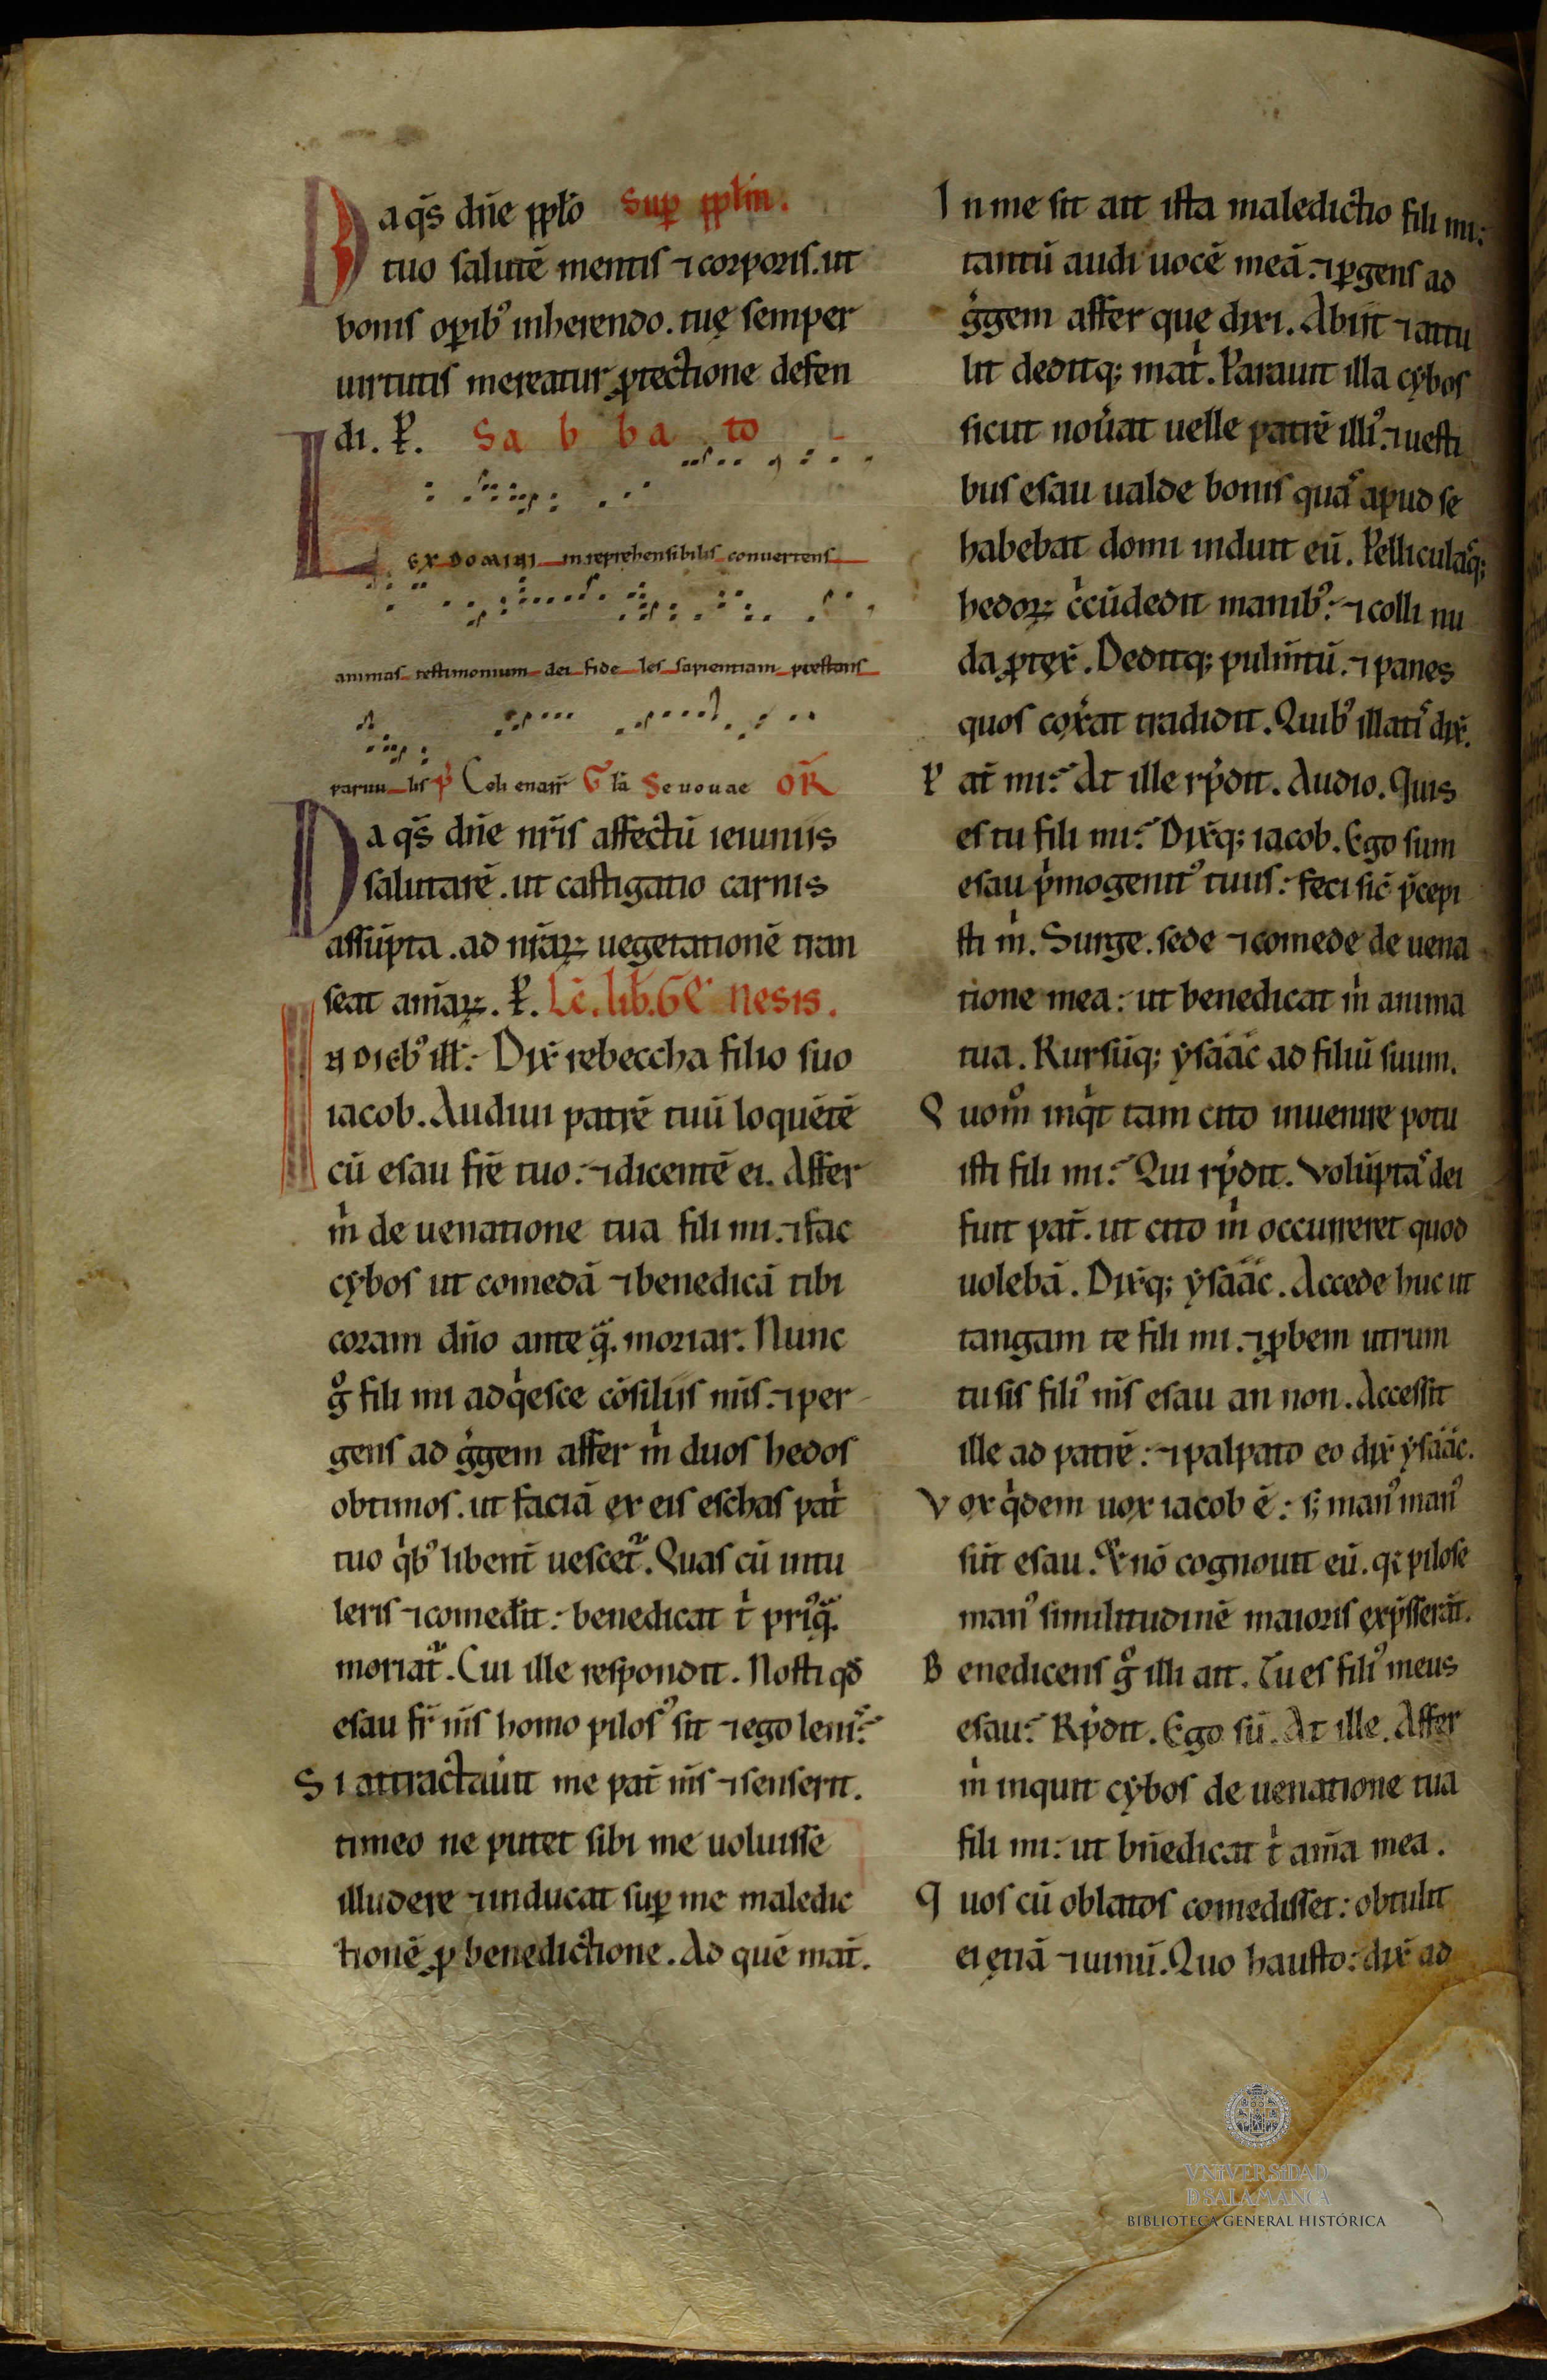 Da q̄s dn̄e pp̄lo Sup̱ pp̄lm̄.
tuo salutē mentis ⁊ corporis. ut
bonis op̱ib᾽ inherendo. tuę semper
uirtutis mereatur ꝓtectione defen
di. P̱. Sabbato
LEX DOMINI inreprehensibilis conuertens
animas testimonium dei fide les sapientiam prestans
paruu lis P̄ Celi enarr̄ Gl̄a Seuouae OR̄
Da q̄s dn̄e nr̄is affectū ieiuniis
salutarē. ut castigatio carnis
assūpta. ad nr̄aꝝ uegetationē tran
seat am̄aꝝ. P̱. Lc̄. lib̄. Genesis.
IN DIEB᾽ ill̄: Dix̄ rebeccha filio suo
iacob. Audiui patrē tuū loquētē
cū esau fr̄e tuo: ⁊ dicentē ei. Affer
m̍ de uenatione tua fili mi. ⁊ fac
cybos ut comedā ⁊ benedicā tibi
coram dn̄o ante q̄. moriar. Nunc
g° fili mi adq̍esce cōsiliis m̄is. ⁊ per
gens ad g̍gem affer m̍ duos hedos
obtimos. ut faciā ex eis eschas pat̍
tuo q̍b᾽ libent̄ uescet᷑. Quas cū intu
leris ⁊ comed̄it: benedicat t̍ pri᾽q̄.
moriat᷑. Cui ille respondit. Nosti qđ
esau fr̄ m̄s homo pilos᾽ sit ⁊ ego leni᾽:
Si attractau̅it me pat̄ m̄s ⁊ senserit.
timeo ne putet sibi me uoluisse
illudere ⁊ inducat sup̱ me maledic
tionē ꝓ benedictione. Ad quē mat̄.
In me sit ait ista maledictio fili mi:
tantū audi uocē meā. ⁊ p̱gens ad
g̍gem affer quę dixi. Abiit ⁊ attu
lit deditq; mat̍. Parauit illa cybos
sicut nou̅at uelle patrē illi᾽. ⁊ uesti
bus esau ualde bonis quas apud se
habebat domi induit eū. Pelliculasq;
hedoꝝ c̍cūdedit manib᾽: ⁊ colli nu
da ꝓtęx̄. Deditq; pulm̄tū. ⁊ panes
quos cox̄at tradidit. Quib᾽ illatis dix̄.
Pat̄ mi: At ille rn̄dit. Audio. Quis
es tu fili mi: Dix̄q; iacob. Ego sum
esau p̍mogenit᾽ tuus: feci sic̄ p̄cepi
sti m̍. Surge. sede ⁊ comede de uena
tione mea: ut benedicat m̍ anima
tua. Rursūq; ysáác ad filiū suum.
Quom° inq̍t tam cito inuenire potu
isti fili mi: Qui rn̄dit. Volūptas dei
fuit pat̄. ut cito m̍ occurreret quod
uolebā. Dix̄q; ysáác. Accede huc ut
tangam te fili mi. ⁊ ꝓbem utrum
tu sis fili᾽ m̄s esau an non. Accessit
ille ad patrē: ⁊ palpato eo dix̄ ysáác.
Vox q̍dem uox iacob ē: s; man᾽ man᾽
sūt esau. Et nō cognouit eū. q; pilose
man᾽ similitudinē maioris exp̄sserāt.
Benedicens g° illi ait. Tu es fili᾽ meus
esau: Rn̄dit. Ego sū. At ille. Affer
m̍ inquit cybos de uenatione tua
fili mi: ut bn̄edicat t̍ am̄a mea.
Quos cū oblatos comedisset: obtulit
ei ęciā ⁊ uinū. Quo hausto: dix̄ ad
VNIVERSIDAD
D SALAMANCA
BIBLIOTECA GENERAL HISTÓRICA